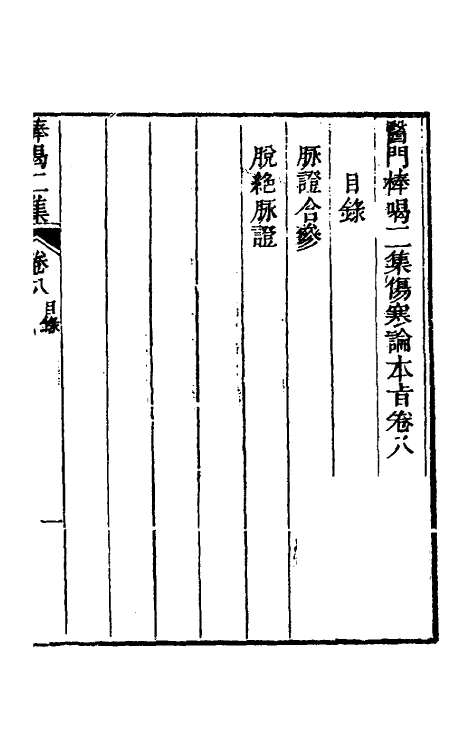 醫門棒喝二集傷寒論本旨卷八
目錄
脉證合參
脫絶脉證
棒喝二集
卷八
目錄
一